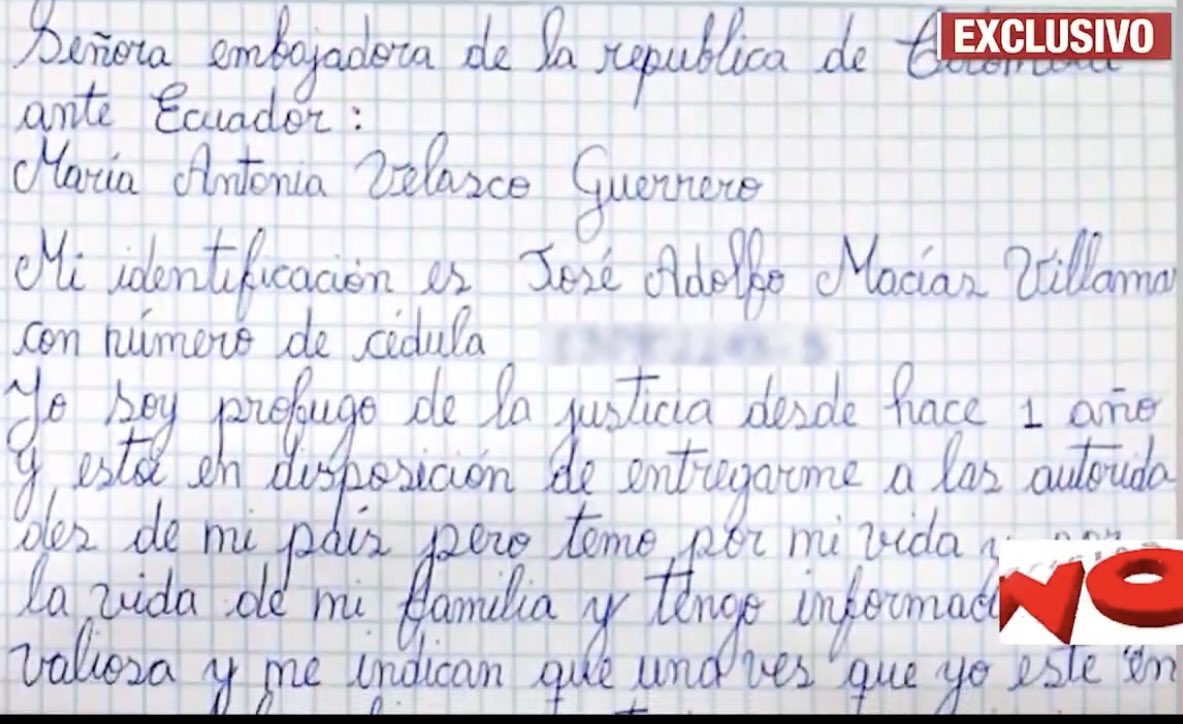 EXCLUSIVO
Señora embajadora de la republica de
ante Ecuador:
María Antonia Velasco Guerrero
Mi identificación es José Adolfo Macías Villama
con número de cédula
Yo soy profugo de la justicia desde hace 1 año
y estoi en disposición de entregarme a las autorida
des de mi país pero temo por mi vida y por
la vida de mi familia y tengo informaci
valiosa y me indican que una ves que yo este en
NO